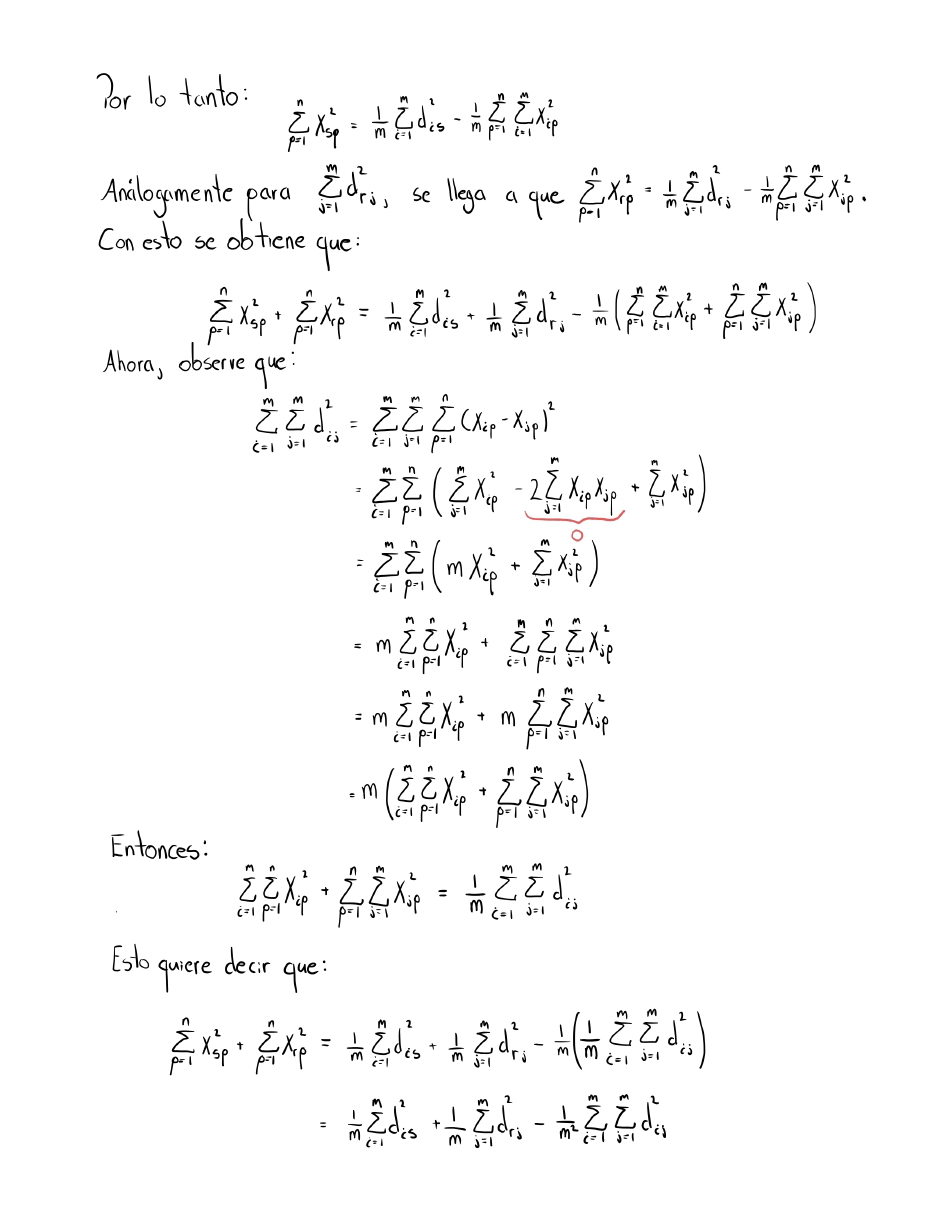 Por lo tanto:
$\sum_{p=1}^{n} X_{sp}^2 = \frac{1}{m} \sum_{i=1}^{m} d_{is}^2 - \frac{1}{m} \sum_{p=1}^{n} \sum_{i=1}^{m} X_{ip}^2$
Análogamente para $\sum_{j=1}^{m} d_{rj}^2$, se llega a que $\sum_{p=1}^{n} X_{rp}^2 = \frac{1}{m} \sum_{j=1}^{m} d_{rj}^2 - \frac{1}{m} \sum_{p=1}^{n} \sum_{j=1}^{m} X_{jp}^2$.
Con esto se obtiene que:
$\sum_{p=1}^{n} X_{sp}^2 + \sum_{p=1}^{n} X_{rp}^2 = \frac{1}{m} \sum_{i=1}^{m} d_{is}^2 + \frac{1}{m} \sum_{j=1}^{m} d_{rj}^2 - \frac{1}{m} \left( \sum_{p=1}^{n} \sum_{i=1}^{m} X_{ip}^2 + \sum_{p=1}^{n} \sum_{j=1}^{m} X_{jp}^2 \right)$
Ahora, observe que:
$\sum_{i=1}^{m} \sum_{j=1}^{m} d_{ij}^2 = \sum_{i=1}^{m} \sum_{j=1}^{m} \sum_{p=1}^{n} (X_{ip} - X_{jp})^2$
$= \sum_{i=1}^{m} \sum_{p=1}^{n} \left( \sum_{j=1}^{m} X_{ip}^2 - \underbrace{2 \sum_{j=1}^{m} X_{ip} X_{jp}}_{0} + \sum_{j=1}^{m} X_{jp}^2 \right)$
$= \sum_{i=1}^{m} \sum_{p=1}^{n} \left( m X_{ip}^2 + \sum_{j=1}^{m} X_{jp}^2 \right)$
$= m \sum_{i=1}^{m} \sum_{p=1}^{n} X_{ip}^2 + \sum_{i=1}^{m} \sum_{p=1}^{n} \sum_{j=1}^{m} X_{jp}^2$
$= m \sum_{i=1}^{m} \sum_{p=1}^{n} X_{ip}^2 + m \sum_{p=1}^{n} \sum_{j=1}^{m} X_{jp}^2$
$= m \left( \sum_{i=1}^{m} \sum_{p=1}^{n} X_{ip}^2 + \sum_{p=1}^{n} \sum_{j=1}^{m} X_{jp}^2 \right)$
Entonces:
$\sum_{i=1}^{m} \sum_{p=1}^{n} X_{ip}^2 + \sum_{p=1}^{n} \sum_{j=1}^{m} X_{jp}^2 = \frac{1}{m} \sum_{i=1}^{m} \sum_{j=1}^{m} d_{ij}^2$
Esto quiere decir que:
$\sum_{p=1}^{n} X_{sp}^2 + \sum_{p=1}^{n} X_{rp}^2 = \frac{1}{m} \sum_{i=1}^{m} d_{is}^2 + \frac{1}{m} \sum_{j=1}^{m} d_{rj}^2 - \frac{1}{m} \left( \frac{1}{m} \sum_{i=1}^{m} \sum_{j=1}^{m} d_{ij}^2 \right)$
$= \frac{1}{m} \sum_{i=1}^{m} d_{is}^2 + \frac{1}{m} \sum_{j=1}^{m} d_{rj}^2 - \frac{1}{m^2} \sum_{i=1}^{m} \sum_{j=1}^{m} d_{ij}^2$